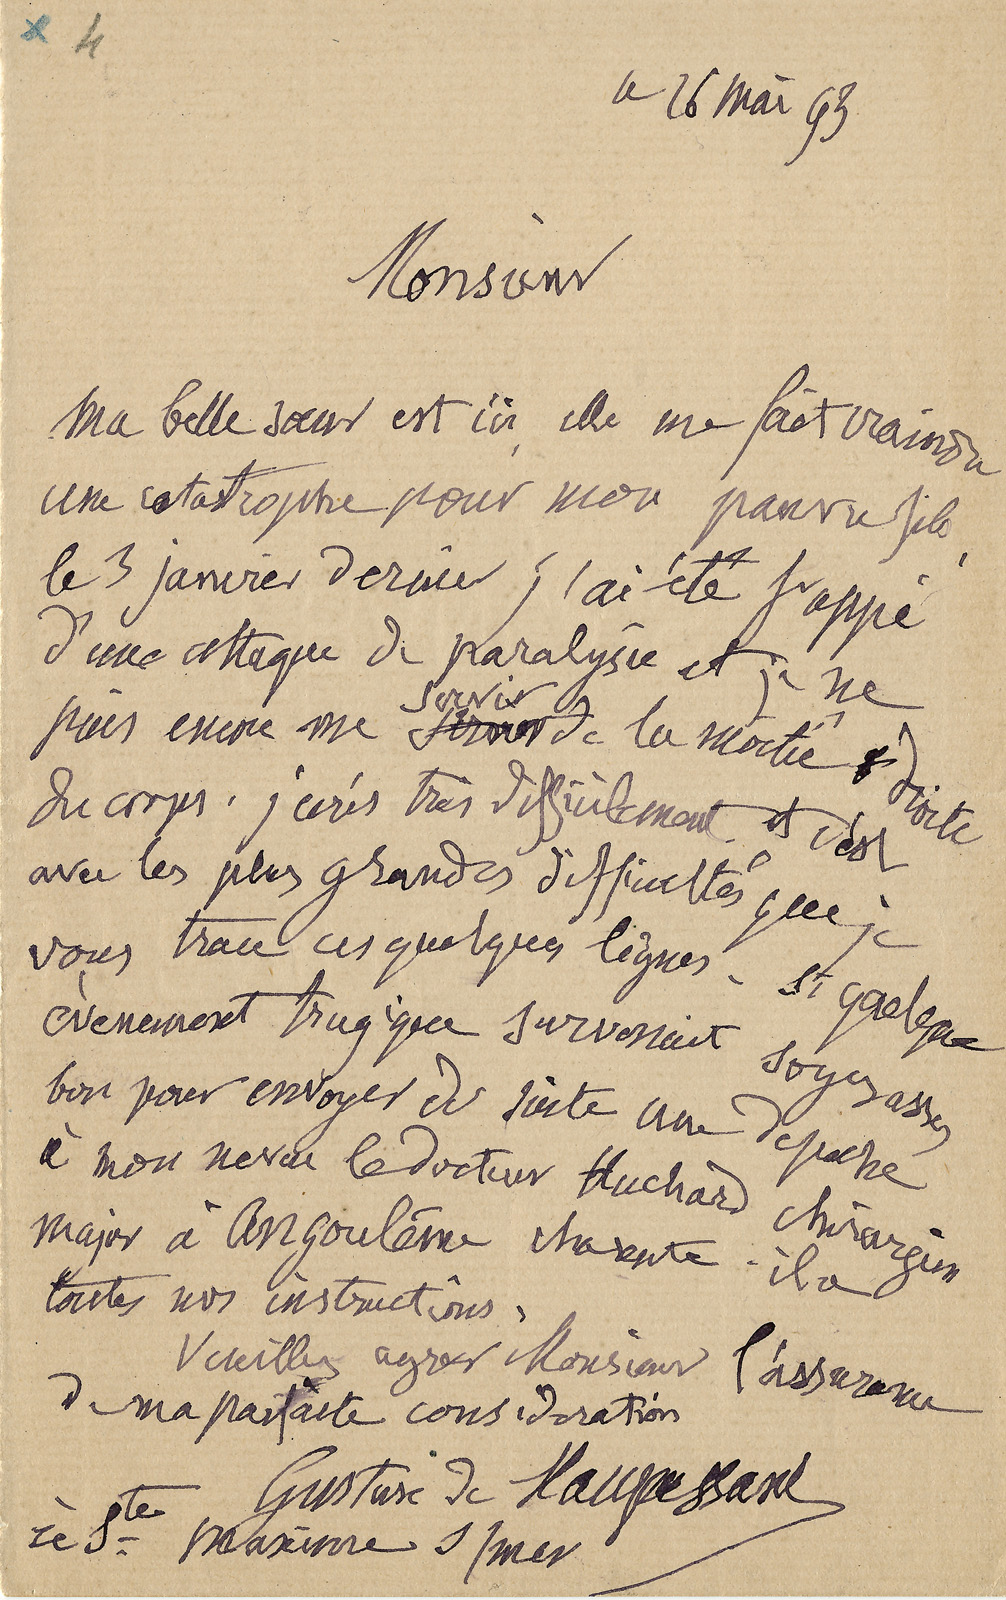 x 4
le 26 mai 93
Monsieur
Ma belle sœur est ici, elle me fait craindre
une catastrophe pour mon pauvre fils,
le 3 janvier dernier j'ai été frappé
d'une attaque de paralysie et je ne
servir
puis encore me de la moitié droite
du corps. j'ecris très difficilement et c'est
avec les plus grandes difficultés que je
vous trace ces quelques lignes. Si quelque
évenement tragique survenait soyez assez
bon pour envoyer de suite une depeche
à mon neveu le docteur Huchard chirurgien
major à Angoulême charente. il a
toutes nos instructions.
Veuillez agreer Monsieur l'assurance
de ma parfaite consideration
Gustave de Maupassant
à Ste Maxime s/mer